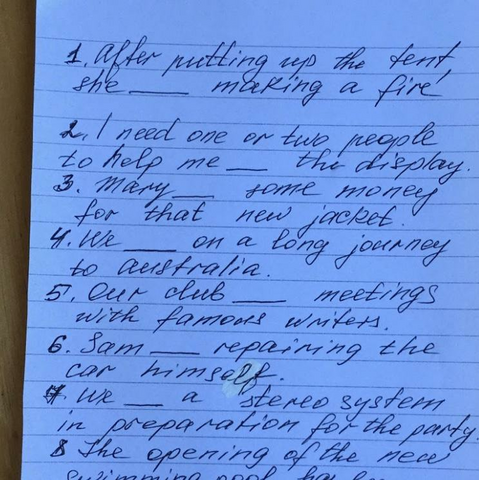 1. After putting up the tent,
she ____ making a fire
2. I need one or two people
to help me ___ the display.
3. Mary ___ some money
for that new jacket.
4. We ____ on a long journey
to Australia.
5. Our club ____ meetings
with famous writers.
6. Sam ___ repairing the
car himself.
7 We ___ a stereo system
in preparation for the party.
8 The opening of the new
swimming pool has